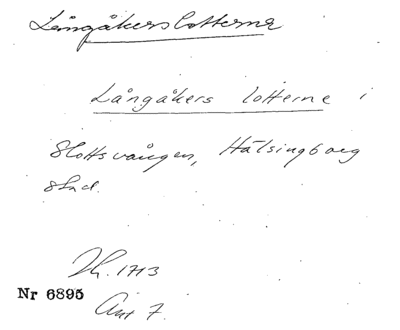 Långåkerslotterne
Långåkers lotterne i
Slottsvången, Hälsingborg
stad.
1713
Nr 6895
7.